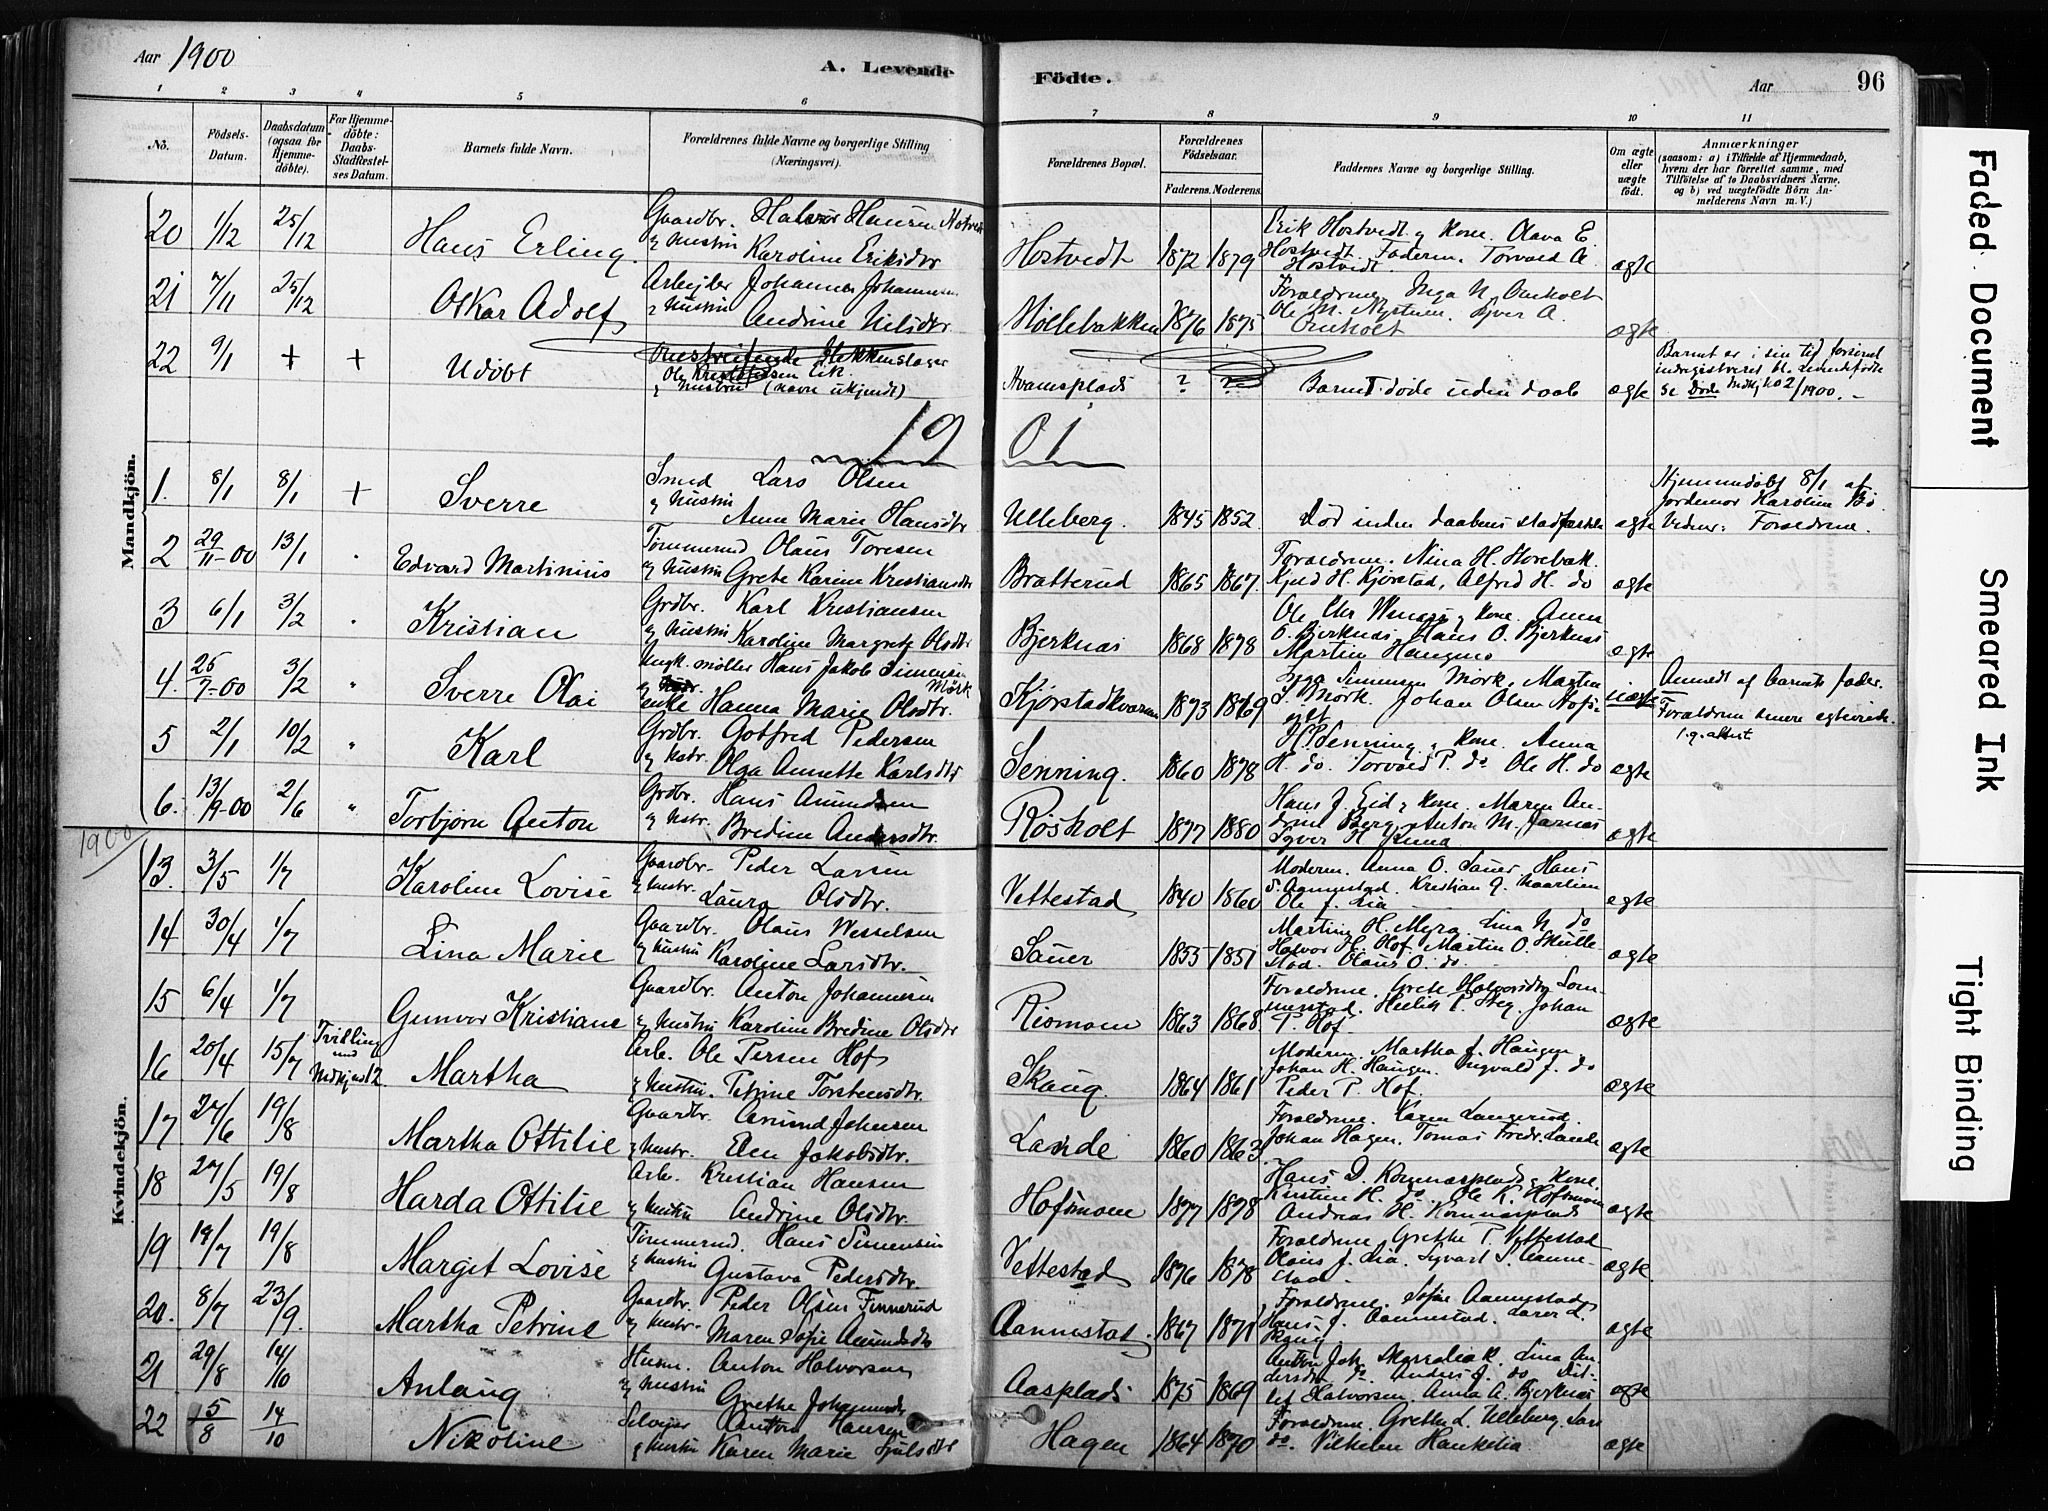 Aar 1900
A. Levende
Födte.
Aar
96
1 2 3 4 5 6 7 8 9 10 11
No. Födsels-Datum. Daabsdatum (ogsaa for Hjemmedöbte). For Hjemmedöbte: Daabs-Stadfæstelses Datum. Barnets fulde Navn. Forældrenes fulde Navne og borgerlige Stilling (Næringsvei). Forældrenes Bopæl. Forældrenes Födselsaar. Faderens. Moderens. Faddernes Navne og borgerlige Stilling. Om ægte eller uægte födt. Anmærkninger (saasom: a) i Tilfælde af Hjemmedaab, hvem der har forrettet samme, med Tilföielse af to Daabsvidners Navne, og b) ved uægtefödte Börn Anmelderens Navn m. V.)
Mandkjön.
20 1/12 25/12 Hans Erling Gaardbr. Halvor Hansen
og Hustru Karoline Eriksdtr Hostvedt 1872 1879 Erik Hostvedt og Kone. Olava E. Hostvedt. Faderen. Torvald A. Hostvedt. ægte
21 7/11 25/12 Oskar Adolf Arbejder Johannes Johannesen
Hustru Andrine Nilsdtr. Møllebakken 1876 1875 Forældrene, Inga N. Omholt Ole M. Nystuen. Syver A. Omholt ægte
22 9/1 + + Udöbt Omstreifende Blikkenslager
Ole Kristofersen Eik.
og Hustru (navn ukjendt) Hvamsplads ? Barnet döde uden daab ægte Barnet er i sin tid indregistreret bl. Levendefödte se Döde Mdkj. No 2/1900.
1901
1. 8/1 8/1 + Sverre Smed Lars Olsen
og Hustru Anne Marie Hansdtr Ulleberg. 1845 1852. Död inden daabens stadfæstelse ægte Hjemmedöbt 8/1 af Jordemor Karoline Bö. Vidner: Forældrene.
2 29/11-00 13/1 Edvard Martinius Tömmermd Olaus Toresen
og Hustru Grete Karine Kristiansdtr Bratterud 1865 1867. Forældrene. Nina H. Horebak. H. Kjörstad, Alfred H. do ægte
3 6/1 3/2 Kristian Grdbr. Karl Kristiansen
og Hustru Karoline Margrete Olsdtr Bjerknæs 1868 1878 Ole Chr. og Kone. Anne O. Bjerknæs, Hans O. Bjerknæs Martin Haugmo ægte
4. 26/7-00 3/2 " Sverre Olai Ungk. møller Hans Jakob Simensen Mørk
og enke Hanna Marie Olsdtr. Kjörstadkværn 1873 1869 Simensen Mörk, Johan Olsen uægte Anmeldt af Barnets fader. Forældrene senere ægteviede
5 2/1 10/2 " Karl Grdbr. Gotfred Pedersen
og Hstr. Olga Annette Karlsdtr Senning. 1860 1878 H. P. Senning og Kone. Anna H. do. Torvald P. do Ole H. do ægte
6. 13/9-00 2/6 " Torbjørn Anton Grdbr. Hans Amundsen
og Hstr. Bredine Andersdtr. Rösholt 1877 1880 Hans J. Eid og Kone. Maren Andrine Berg, Anton M. Jarnæs Syver H. ægte
1900
Kvindekjön.
13. 3/5 1/7 Karoline Lovise Gaardbr. Peder Larsen
og Hustr. Laura Olsdtr. Vettestad 1840 1860 Moderen. Anna O. Sauer, Hans S. Aannestad. Kristian G. Ole J. Lia ægte
14 30/4 1/7 Lina Marie Gaardbr. Olaus Wesselsen
og Hustru Karoline Larsdtr. Sauer 1855 1851 Martine H. Myra, Lina N. do Halvor H. Hof. Martin O. Skullestad. Olaus O. do. ægte
15 6/4 1/7 Gunvor Kristiane Gaardbr. Anton Johannesen
og Hustru Karoline Bredine Olsdtr Rismoen 1863 1868 Forældrene. Grete Halvorsdtr Johan P. Hof. ægte
16 20/4 15/7 Tvilling med Mdkj. no 12 Martha Arb. Ole Persen Hof
og Hustru. Petrine Torstensdtr. Skaug. 1864 1861 Moderen. Martha J. Haugen Johan H. Haugen. Ingvald J. do Peder P. Hof. ægte
17 27/6 19/8 Martha Ottilie Gaardbr. Amund Johnsen
og Hustr. Elen Jakobsdtr. Lande 1860 1863. Forældrene. Karen Langerud. Johan Hagen. Tomas Fredr. Lande ægte
18 27/5 19/8 Harda Ottilie Arb. Kristian Hansen
og Hustru Andrine Olsdtr. Hofsmoen 1877 1878 Hans D. Kornnæsplads og Kone. Kirstine H. do. Ole K. Hofsmoen Andreas H. Kornnæsplads ægte
19 19/7 19/8 Margit Lovise Tömmermd. Hans Simensen
og Hustru Gustava Pedersdtr. Vettestad 1876 1878 Forældrene. Grethe P. Vettestad Olaus J. Lia. Syvert S. Aannestad. ægte.
20. 8/7 23/9. Martha Petrine Gaardbr. Peder Olsen Finnerud
og Hustr. Maren Sofie Amundsdtr Aannestad. 1867 1871 Forældrene. Sofie Aannestad Hans J. Aannestad. Skaug ægte
21 29/8 14/10 Anlaug Husm. Anton Halvorsen
og Hustru Grethe Johannesdtr Aasplads 1875 1869 Anton Joh. Lina Andersdtr do. Anders J. do Ditlef Halvorsen, Anna A. Bjerknæs ægte
22 15/8 14/10 Nikoline Selveier Anton Hansen
og Hustru Karen Marie Hagen 1864 1870 Forældrene. Grethe L. Ulleberg, do. Vilhelm ægte
Faded Document
Smeared Ink
Tight Binding